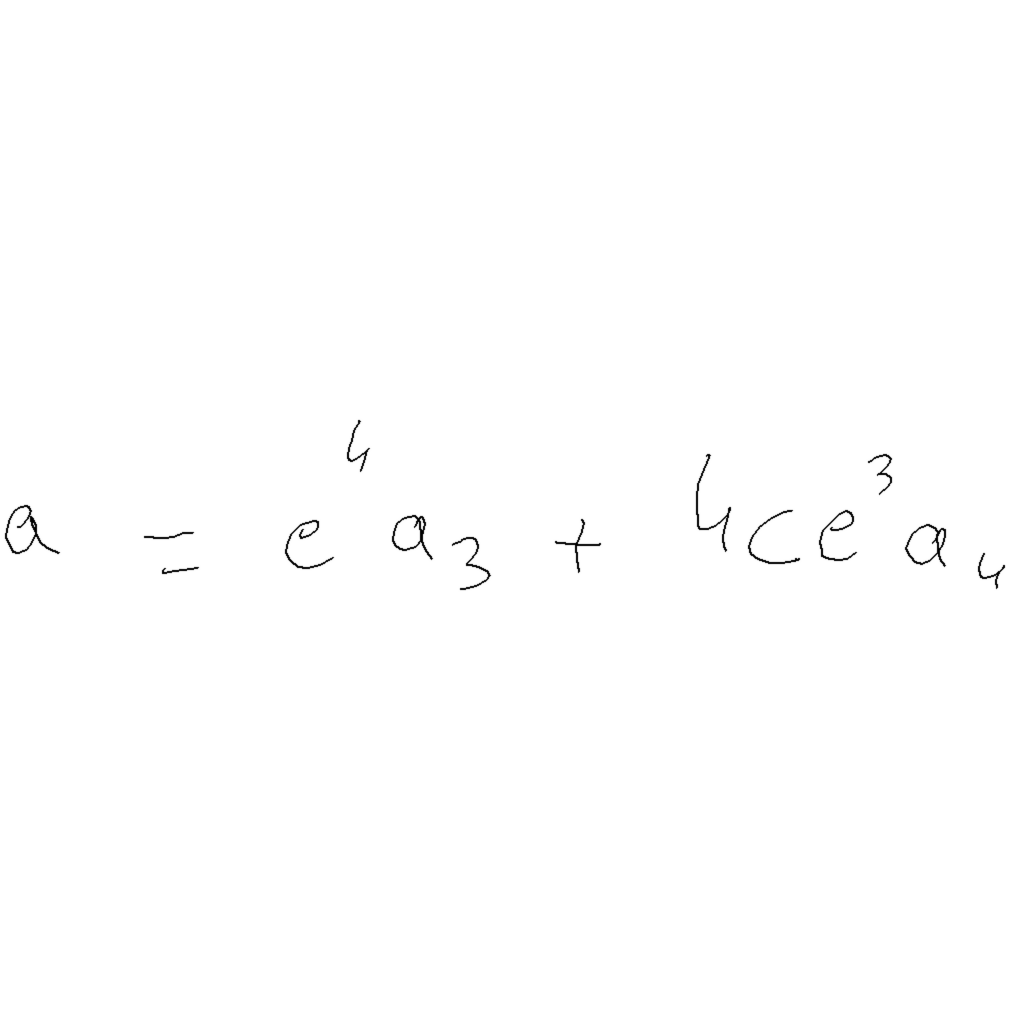 a = e^4 a_3 + 4ce^3 a_4